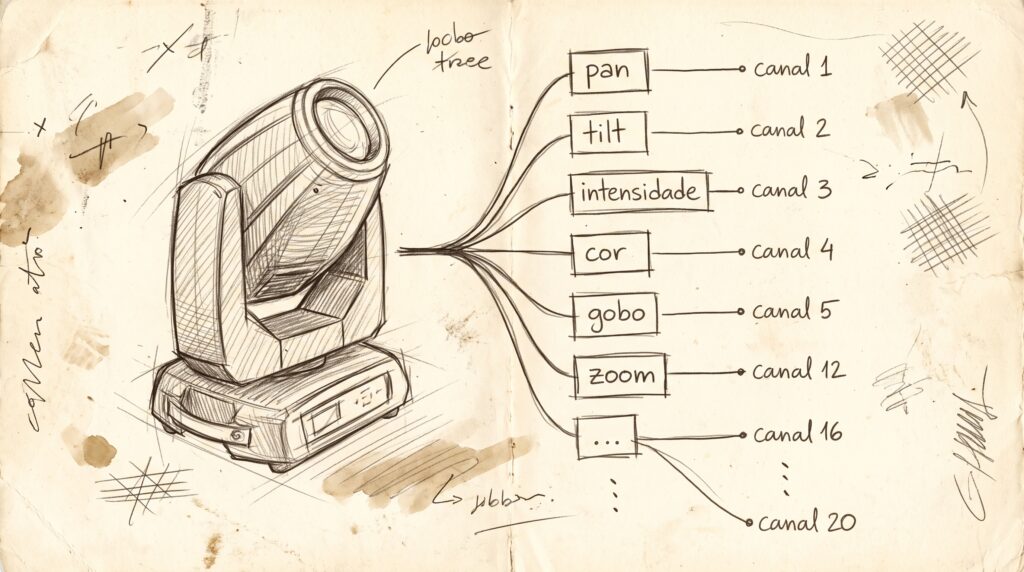 pan
canal 1
tilt
canal 2
intensidade
canal 3
cor
canal 4
gobo
canal 5
zoom
canal 12
...
canal 16
canal 20